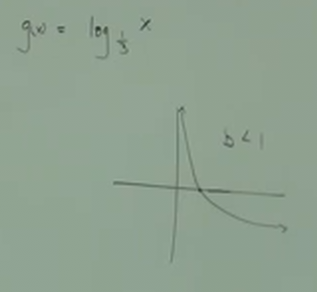 g(x) = log 1/3 x
b < 1